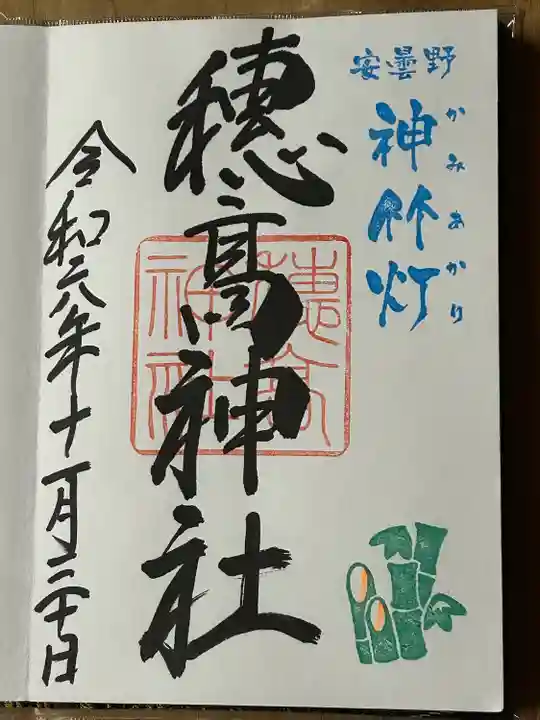 安曇野
神竹灯
かみあかり
穂高神社
穂高
神社
令和六年十一月三十日